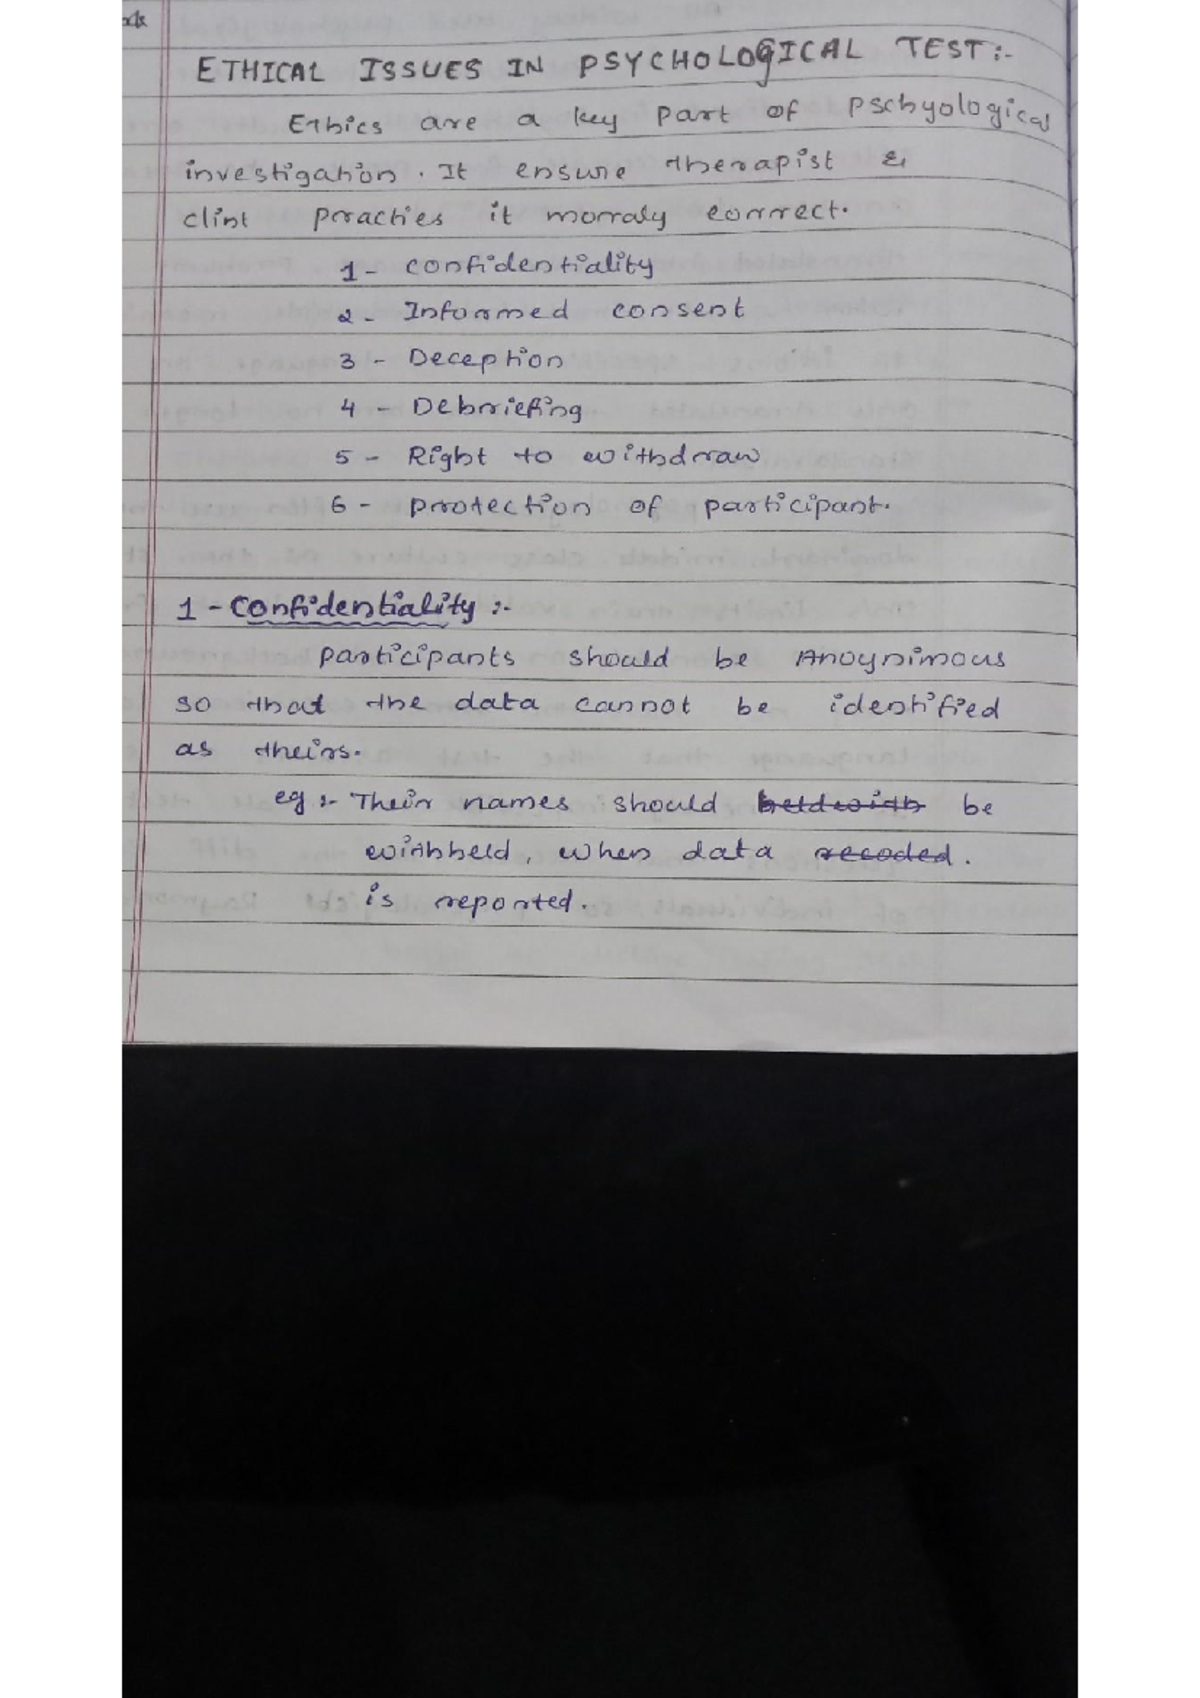 ETHICAL ISSUES IN PSYCHOLOGICAL TEST :-
Ethics are a key part of Pschyological
investigation. It ensure therapist &
clint practies it morraly correct.
1 - confidentiality
2 - Informed consent
3 - Deception
4 - Debriefing
5 - Right to withdraw
6 - protection of participant.
1 - Confidentiality :-
participants should be Anoynimous
so that the data cannot be identified
as theirs.
eg :- Their names should be
withheld, when data recoded.
is reported.